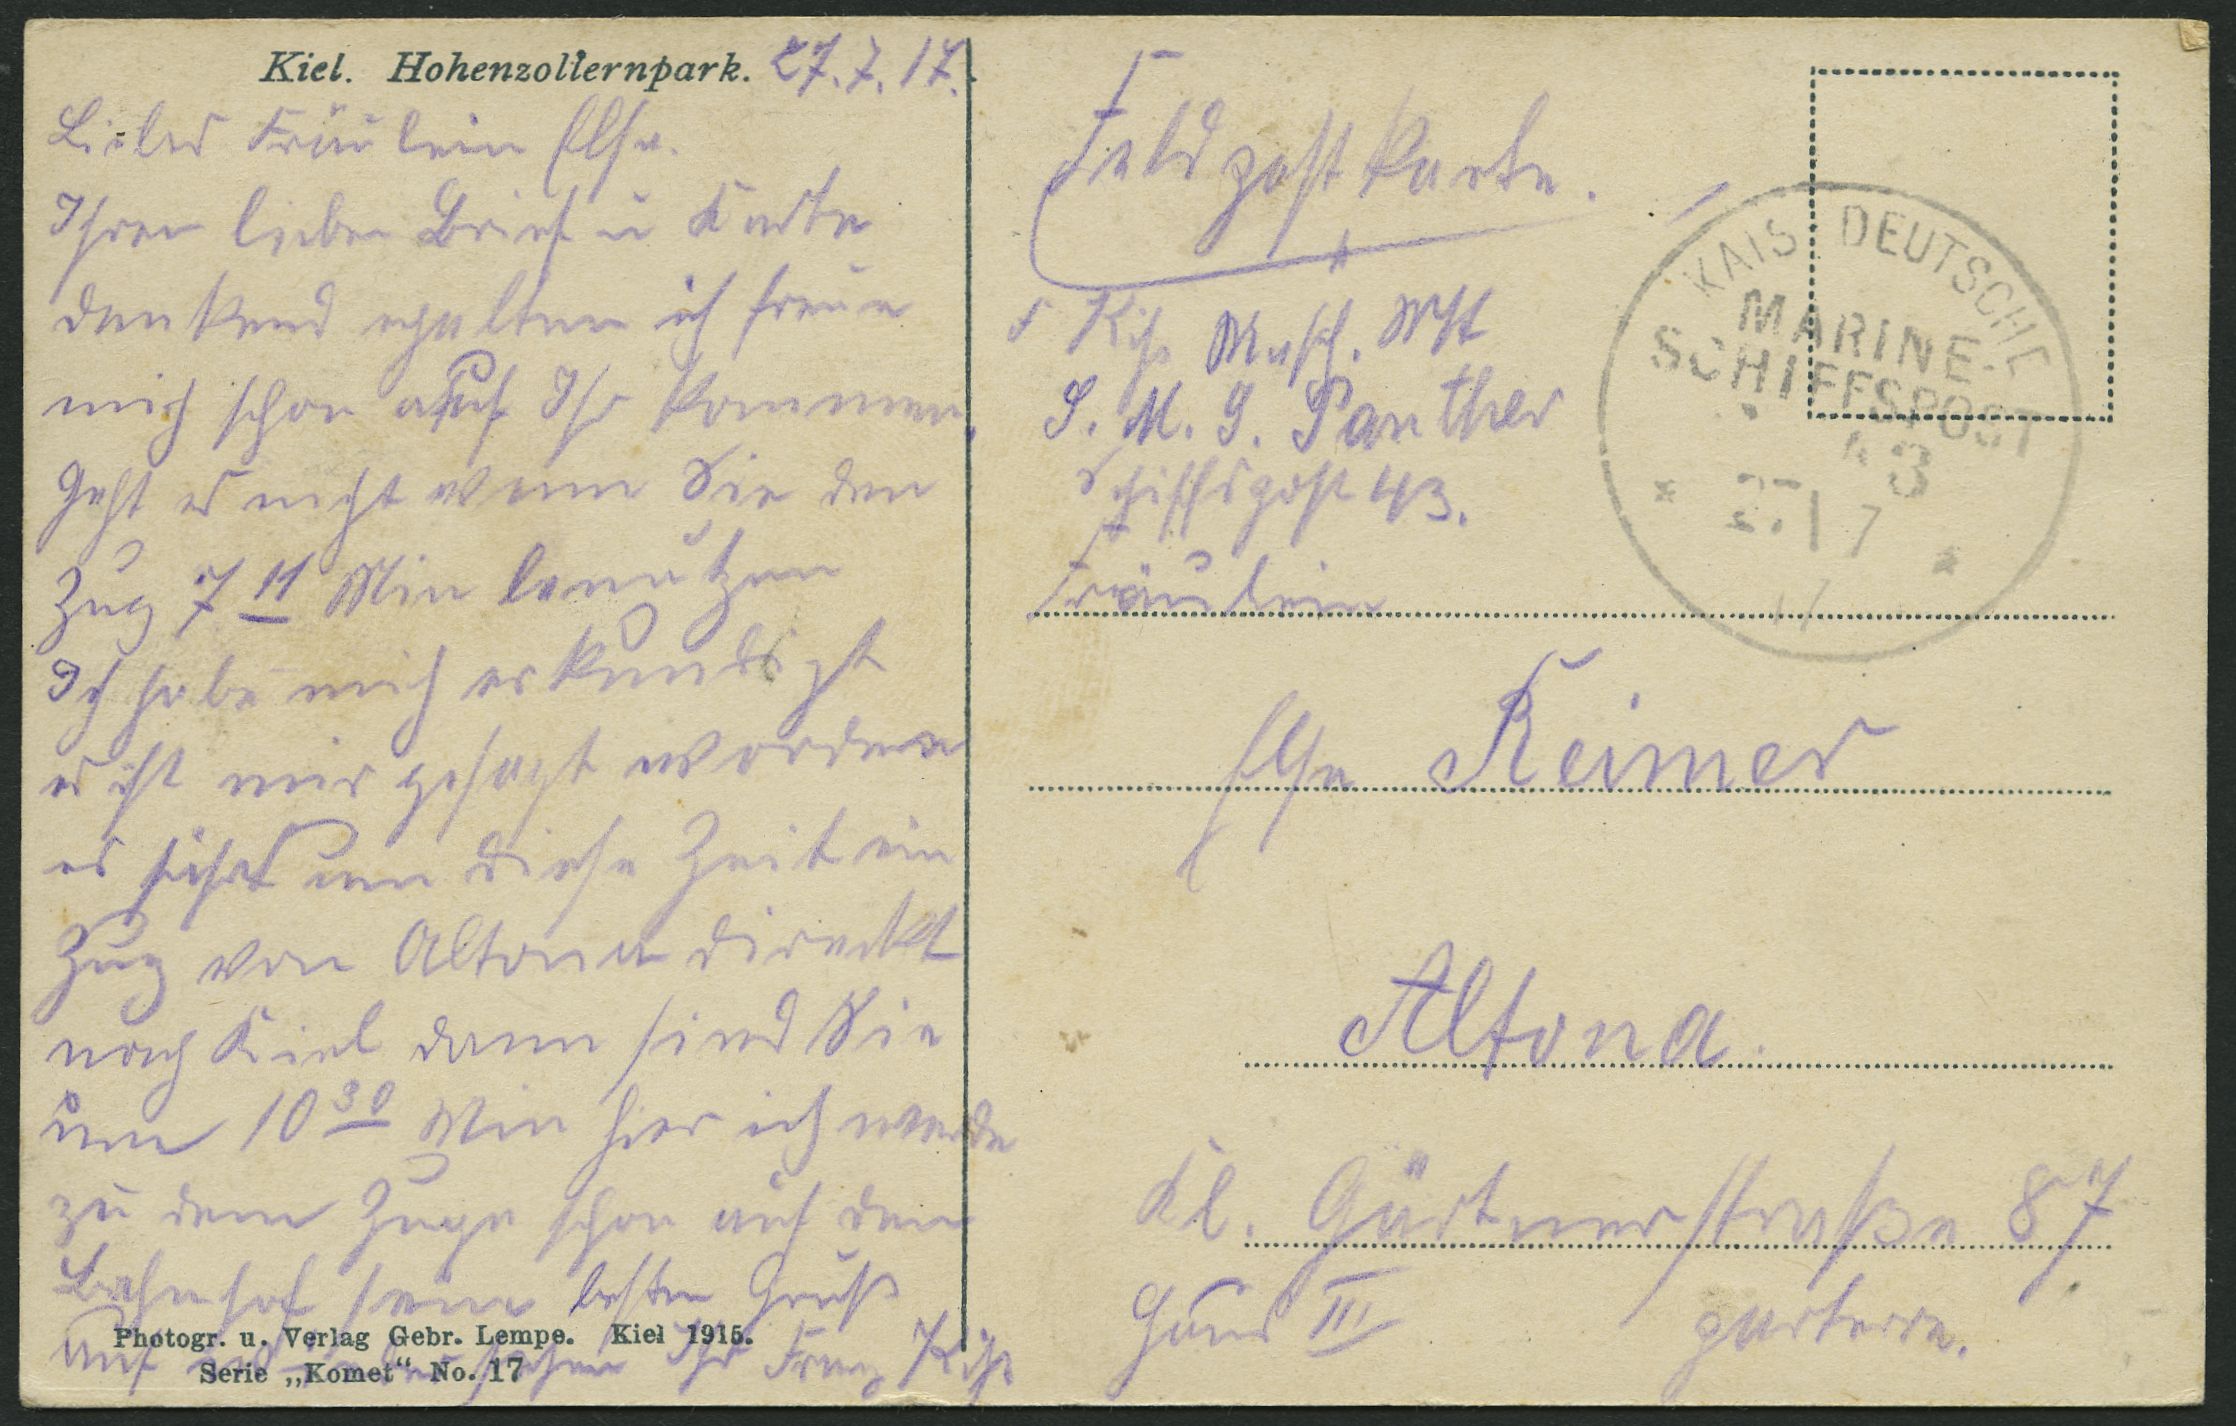 Kiel. Hohenzollernpark. 27.7.17.
Liebes Fräulein Else.
Ihren lieben Brief u Karte
dankend erhalten ich freue
mich schon auf Ihr kommen,
geht es nicht wenn Sie den
Zug 7 11 Min benutzen
Ich habe mich erkundigt
es ist mir gesagt worden
es fährt um diese Zeit ein
Zug von Altona direckt
nach Kiel dann sind Sie
um 10 30 Min hier ich werde
zu dem Zuge schon auf dem
Bahnhof sein besten Gruß
Auf Ihr Franz
Photogr. u. Verlag Gebr. Lempe. Kiel 1915.
Serie „Komet“ No. 17
Feldpostkarte.
Masch.
S. M. S. Panther
Schiffspost 43.
Fräulein
Else Reimer
Altona.
Kl. Gärtnerstraße 87
Haus III parterre.
KAIS. DEUTSCHE
MARINE-
SCHIFFSPOST
43
7
17